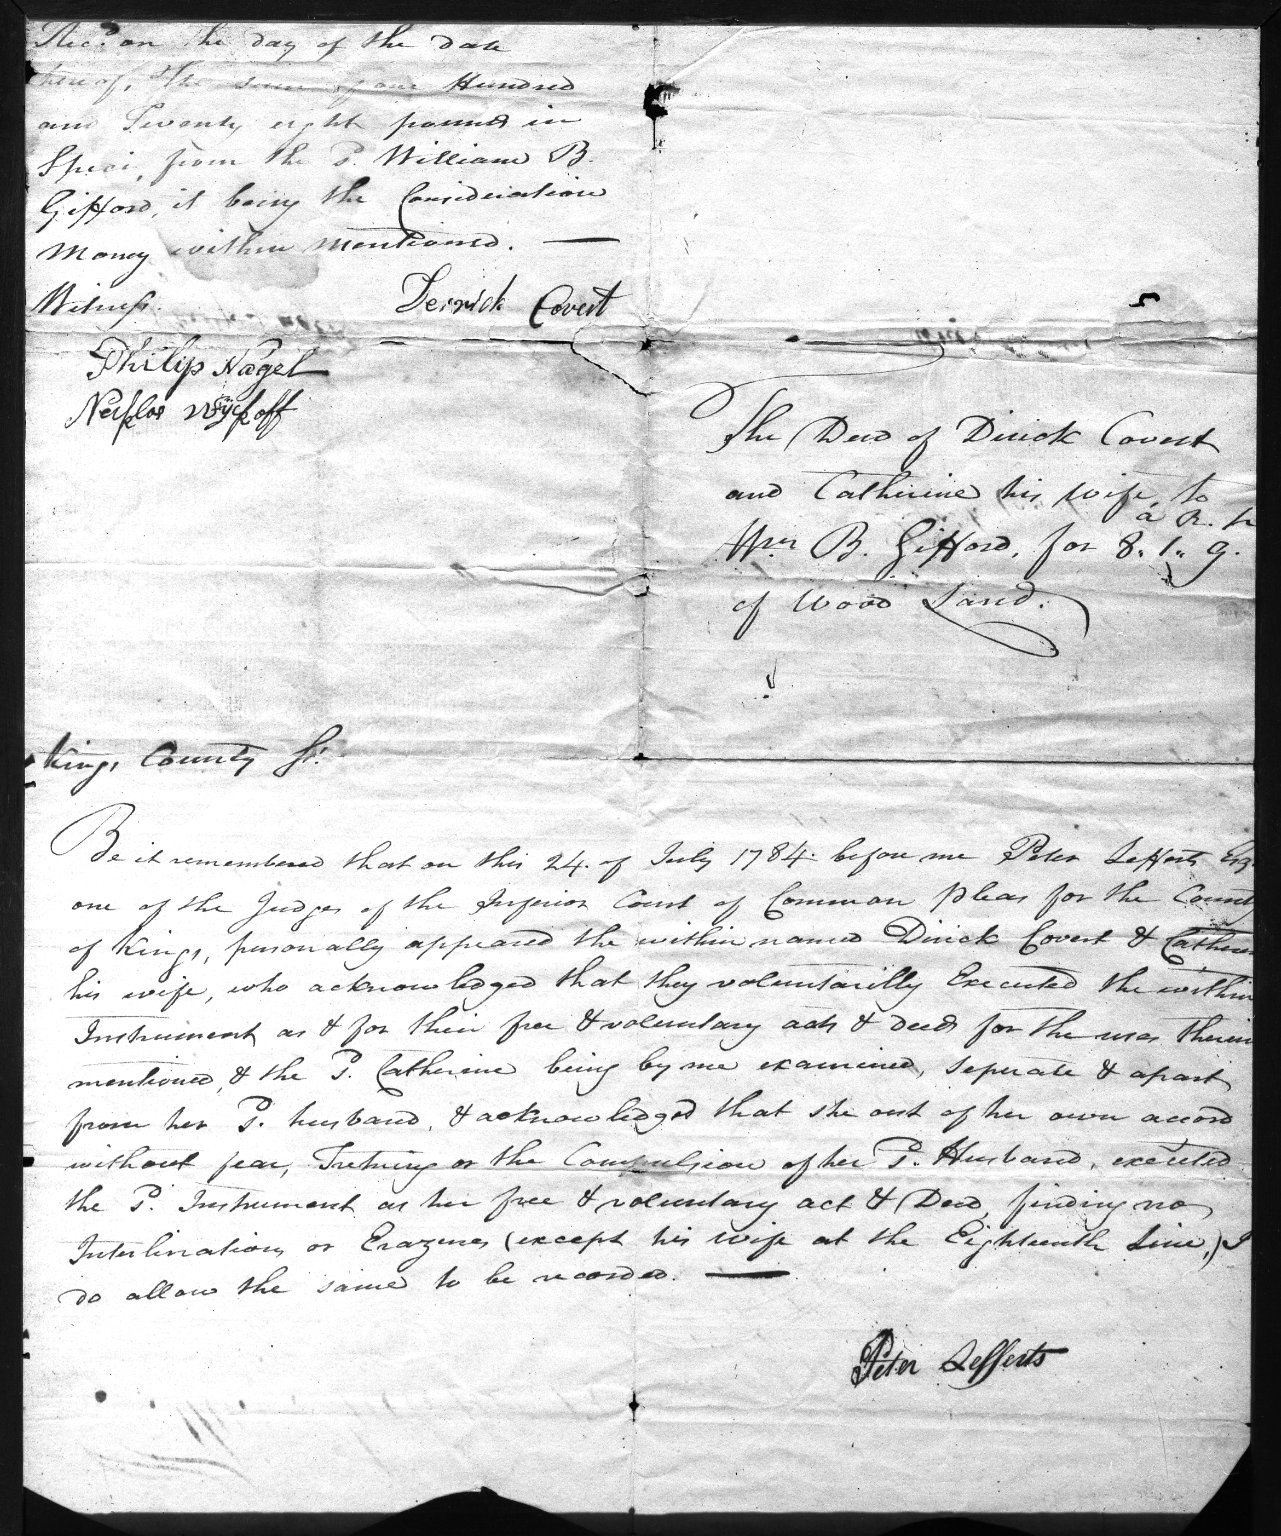 Rec.d on the day of the date
hereof, the sum of one Hundred
and Twenty eight pounds in
Speci, from the S. William B.
Gifford, it being the Consideration
Money within mentioned. —
Witness.
Derrick Covert
Philip Nagel
Wyckoff
The Deed of Dirick Covert
and Catherine his wife, to
a R.
Wm B. Gifford, for 8. 1. 9.
of Wood Land.
Kings County Ss.
Be it remembered that on this 24. of July 1784. before me Peter Lefferts Esq.
one of the Judges of the Inferior Court of Common Pleas for the County
of Kings, personally appeared the within named Dirick Covert & Catherine
his wife, who acknowledged that they voluntarilly Executed the within
Instrument as & for their free & voluntary acts & deeds for the uses therein
mentioned, & the S. Catherine being by me examined, seperate & apart
from her S. husband, & acknowledged that she out of her own accord
without fear, Tretning or the Compulsion of her S. Husband, executed
the S. Instrument as her free & voluntary act & Deed, finding no
Interlinations or Erazures (except his wife at the Eighteenth Line,) I
do allow the same to be recorded. —
Peter Lefferts